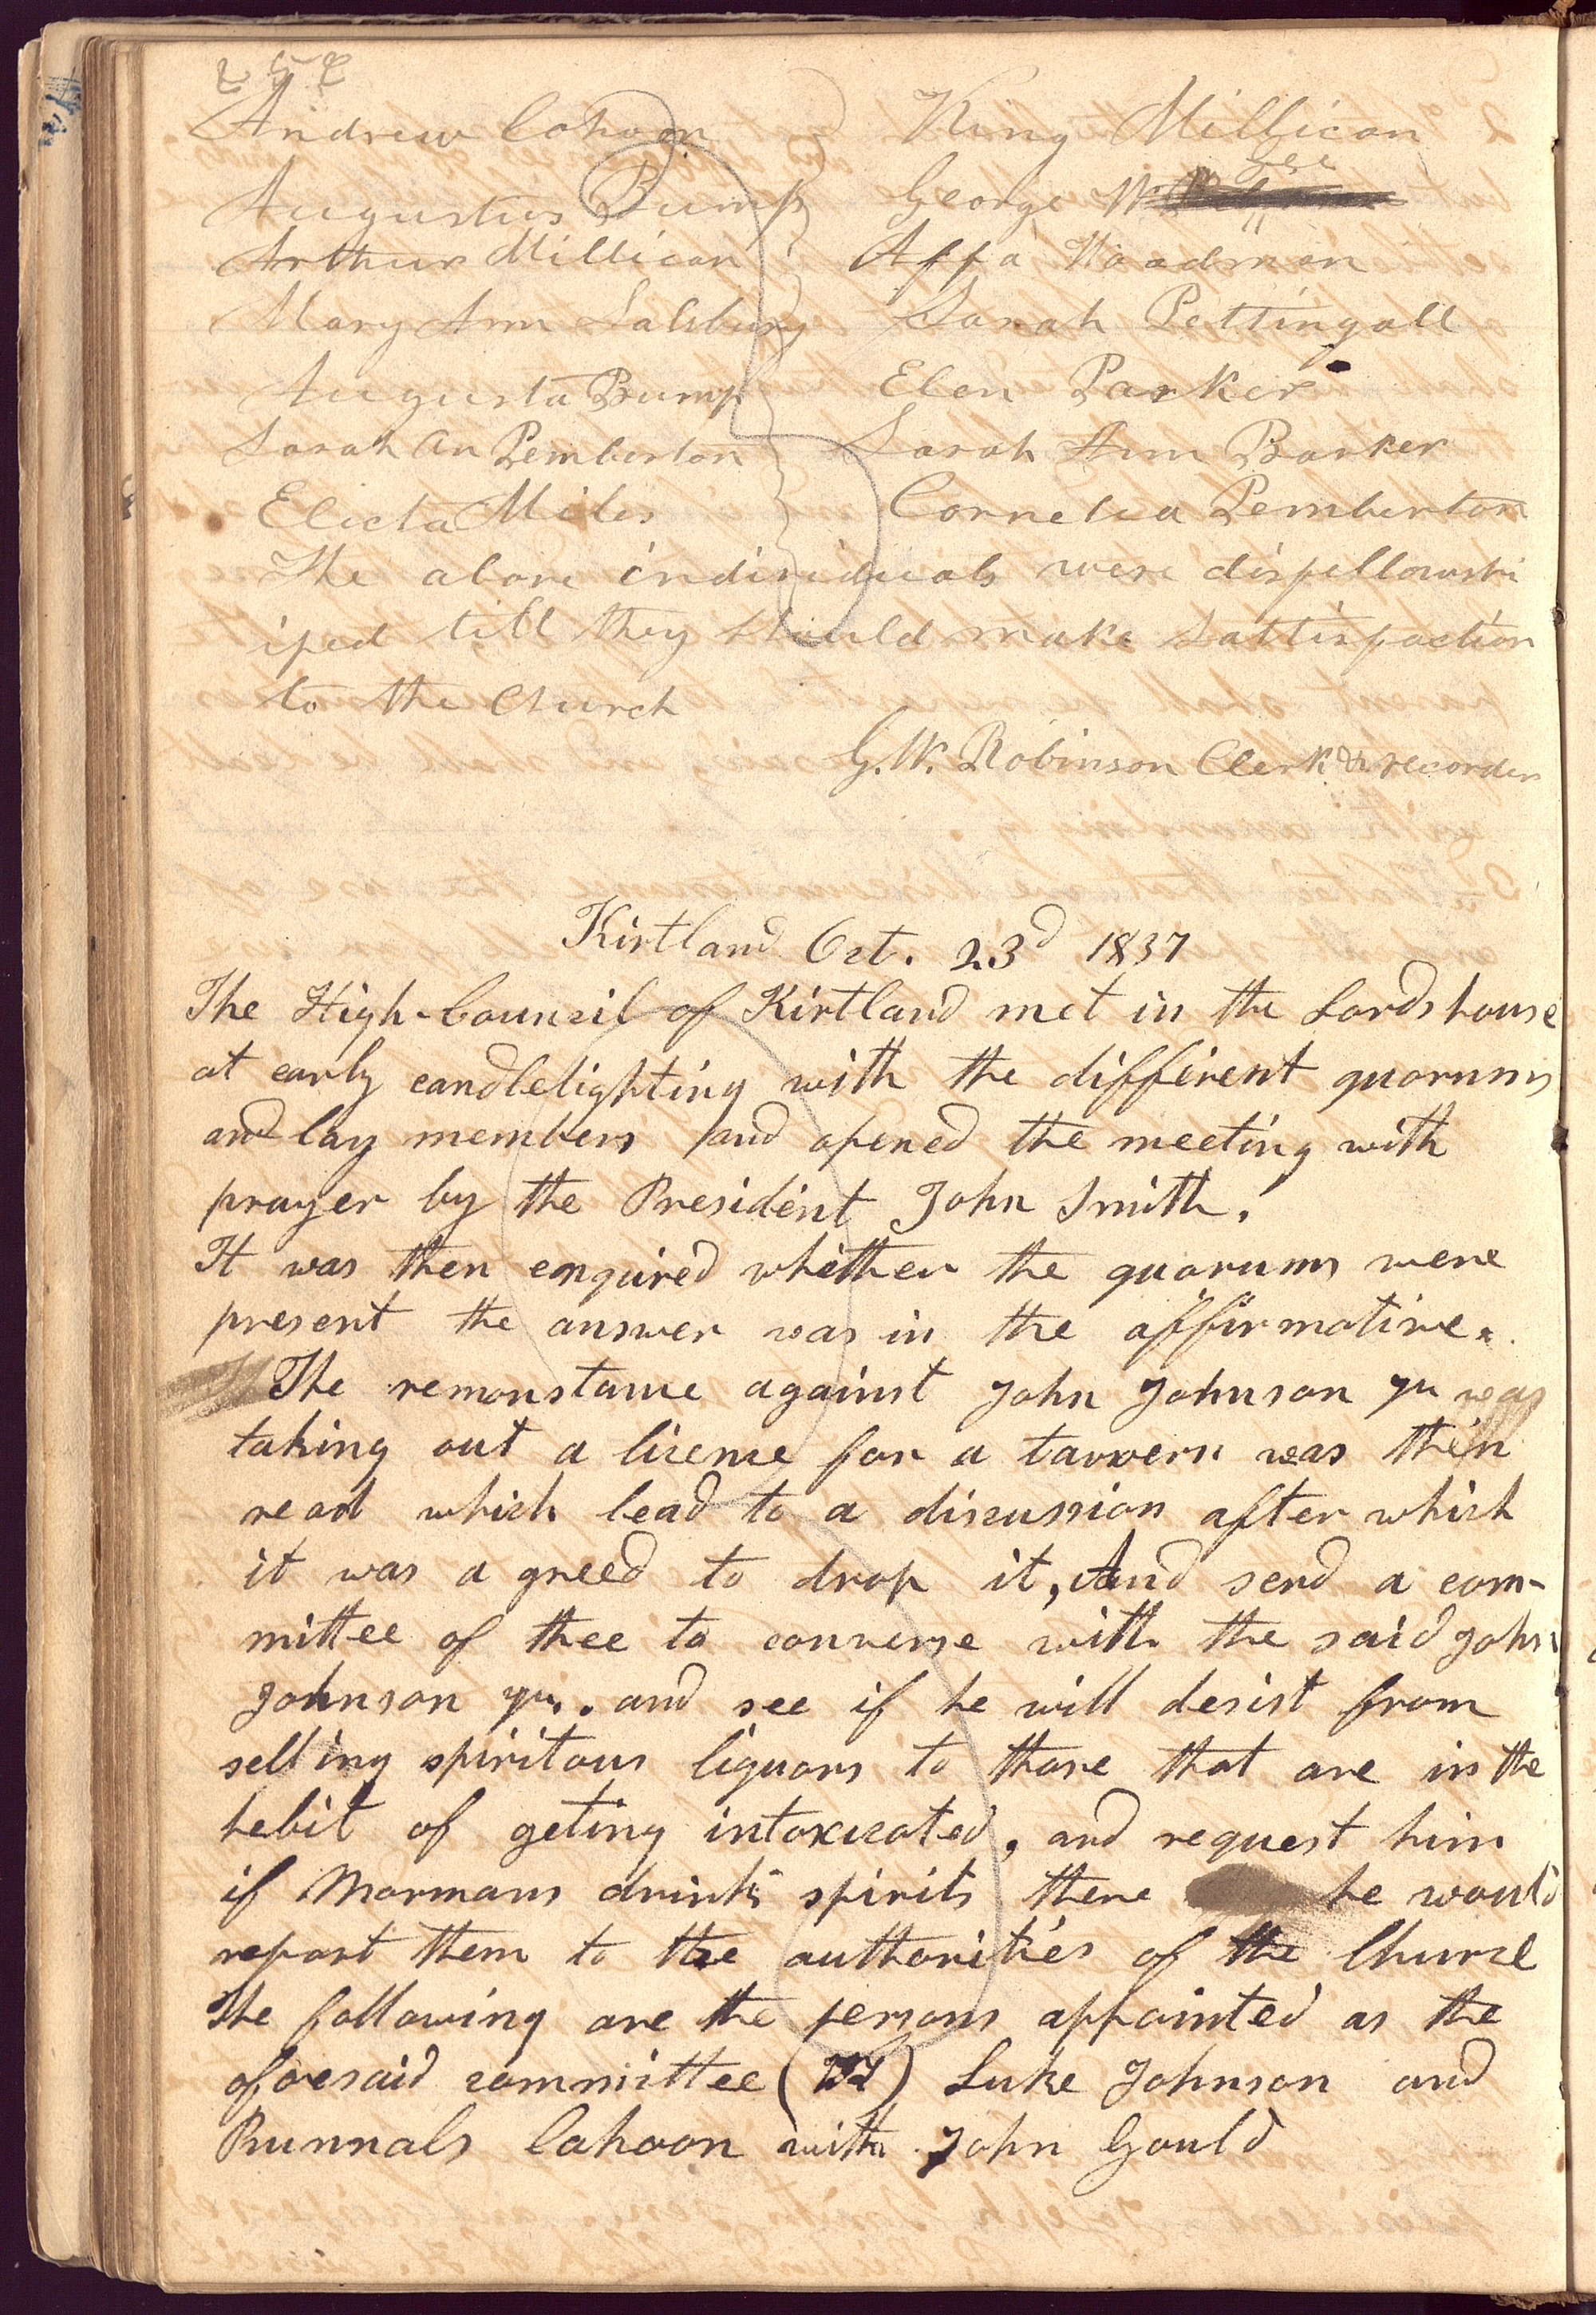 252
Andrew Cahoon King Millican
Gee
Augustus Bump George W
Arthur Millican Affa Woodman
Mary Ann Salsbury Sarah Pettingall
Augusta Bump Elen Parker
Sarah An Pemberton Sarah Ann Barker
Electa Miles Cornelia Pemberton
The above individuals were disfellowsh
iped till they should make sattisfaction
to the Church
G. W. Robinson Clerk & recorder
Kirtland Oct. 23d 1837
The High-Council of Kirtland met in the Lords house
at early candlelighting with the different quorums
and lay members and opened the meeting with
prayer by the President John Smith.
It was then enquired whether the quorums were
present the answer was in the affirmative.
The remonstance against John Johnson Jr. was
taking out a license for a tavvern was then
read which lead to a discussion after which
it was a greed to drop it, And send a com-
mittee of thee to converse with the said John
Johnson Jr. and see if he will desist from
selling spiritous liquors to those that are in the
hebit of geting intoxicated, and request him
if Mormans drink spirits there he would
report them to the authorities of the Churce
The following are the persons appointed as the
aforesaid committee (Vz) Luke Johnson and
Runnals Cahoon with John Gould